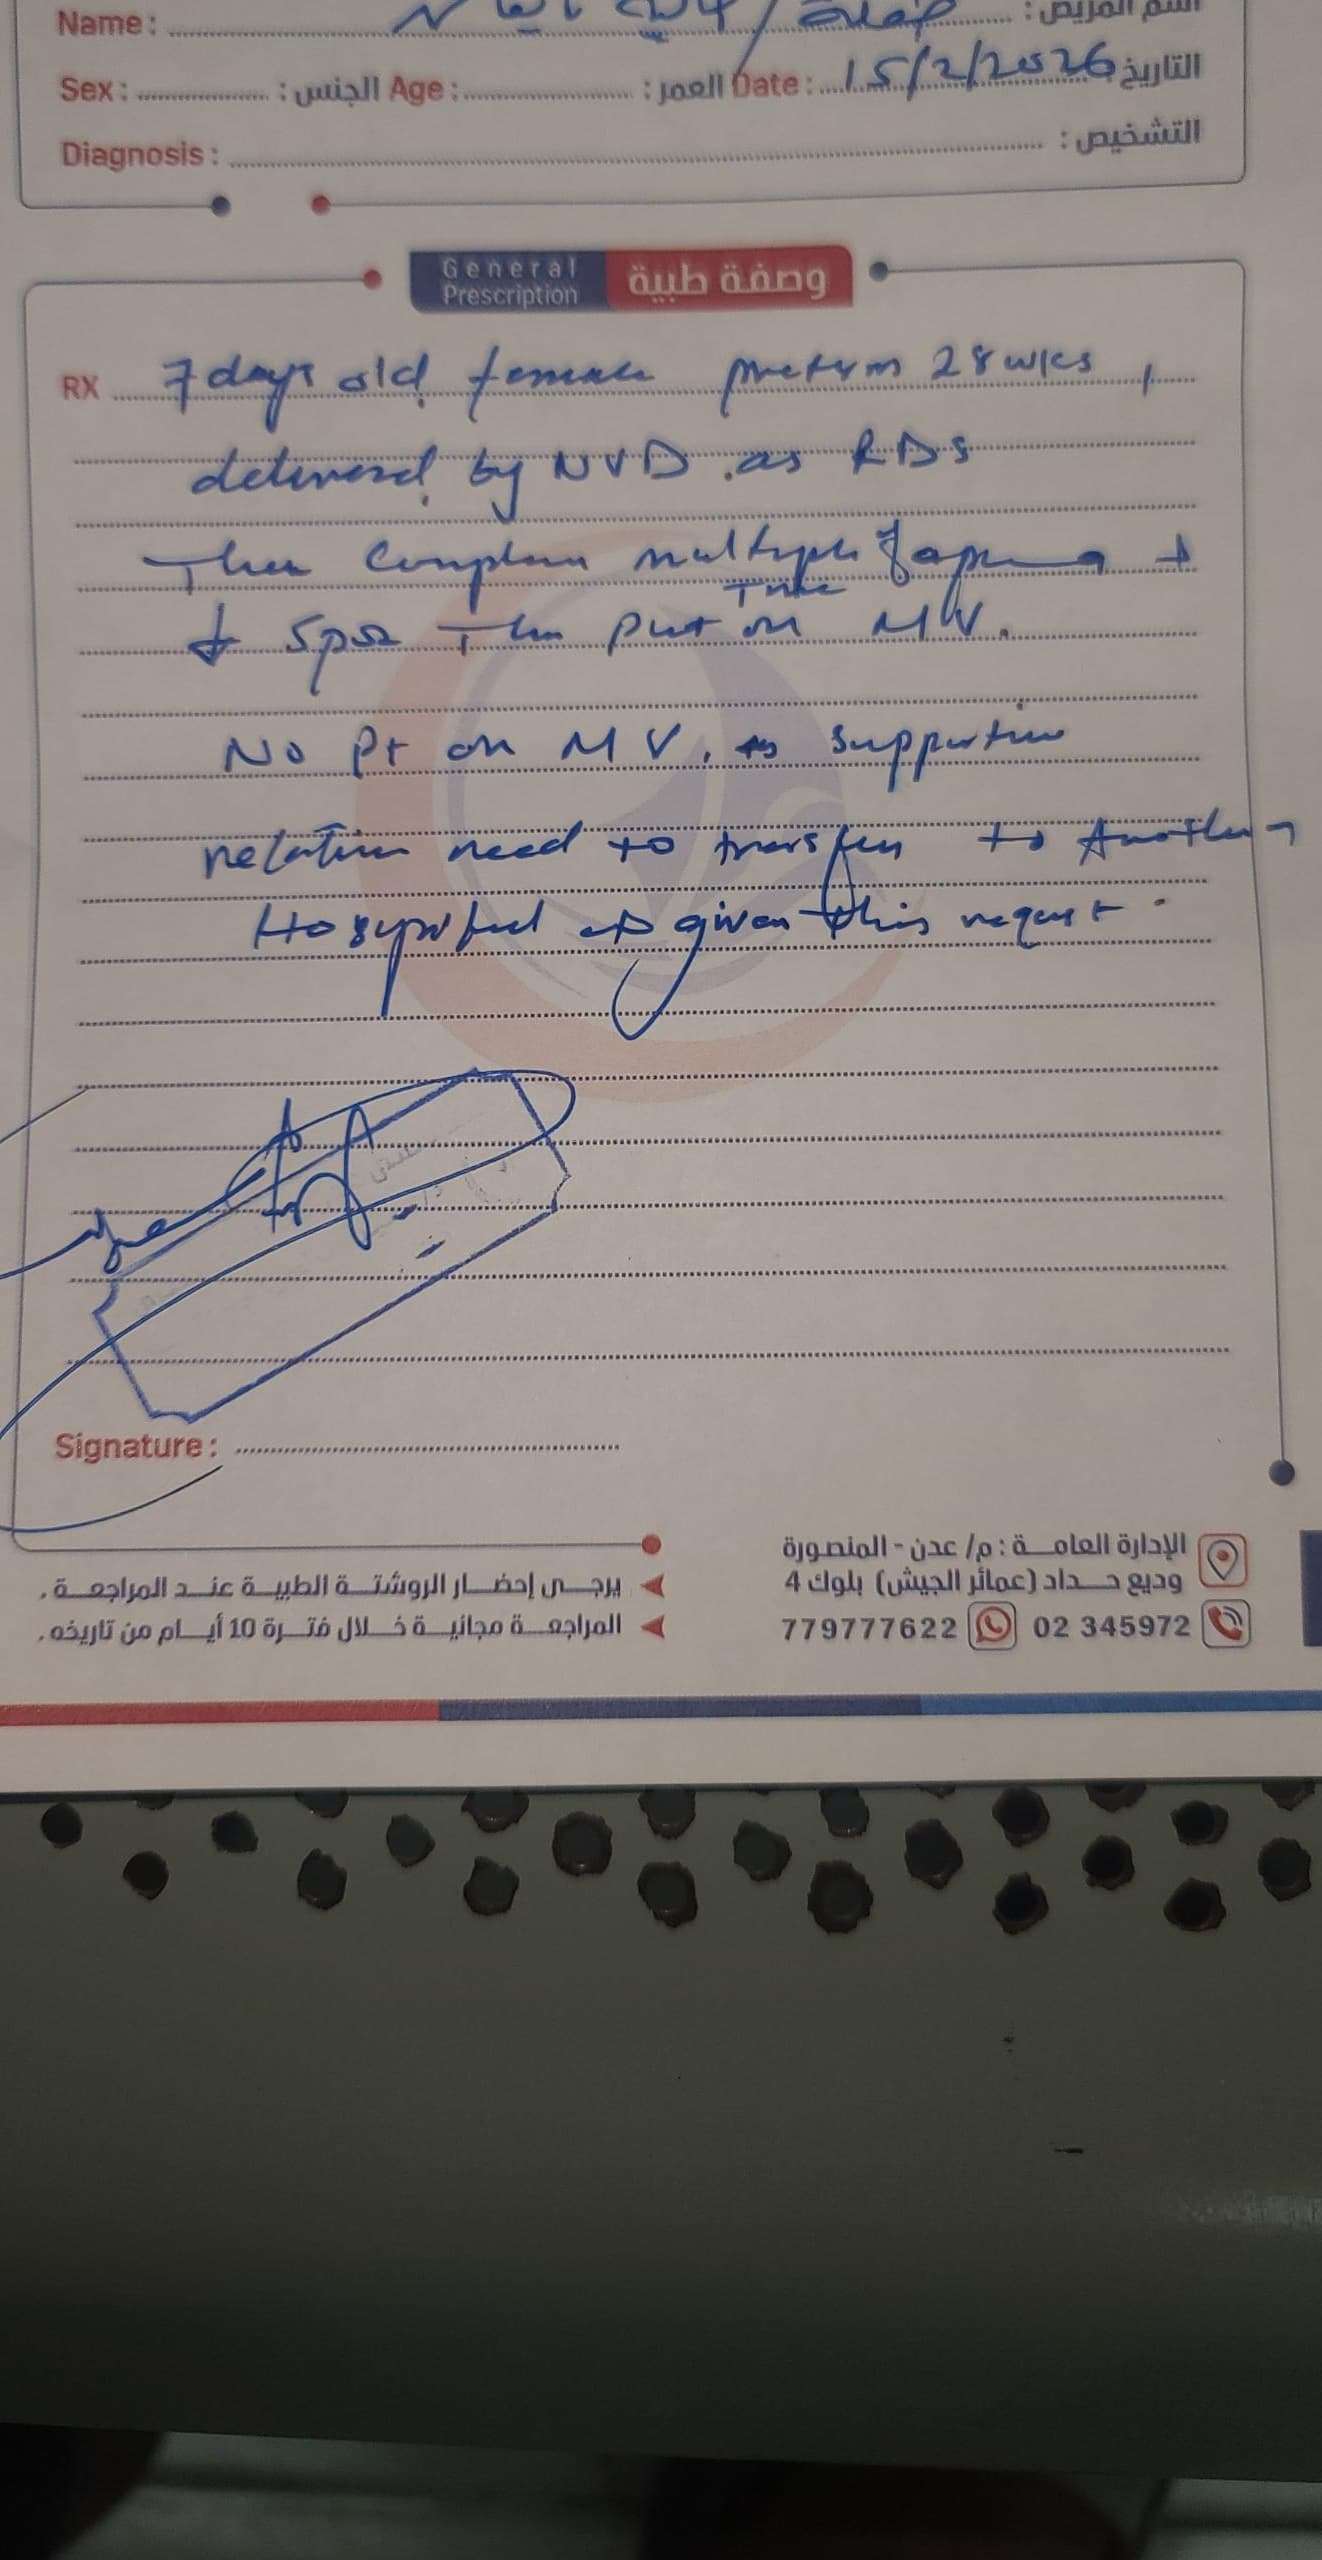 Name: طفلة / اسم المريض:
Sex: الجنس: Age: العمر: Date: 15/2/2026 التاريخ
Diagnosis: التشخيص:
General Prescription وصفة طبية
RX 7 days old, female preterm 28 wks,
delivered by NVD. as RDS
Then complain multiple of apnea +
Time
↓ SpO2 Then put on MV.
No Pt on MV. as supportive
relative need to transfer to Another
Hospital given this request.
Signature:
الإدارة العامة: م/ عدن - المنصورة
وديع حداد (عمائر الجيش) بلوك 4
779777622 02 345972
يرجى إحضار الروشتة الطبية عند المراجعة.
المراجعة مجانية خلال فترة 10 أيام من تاريخه.